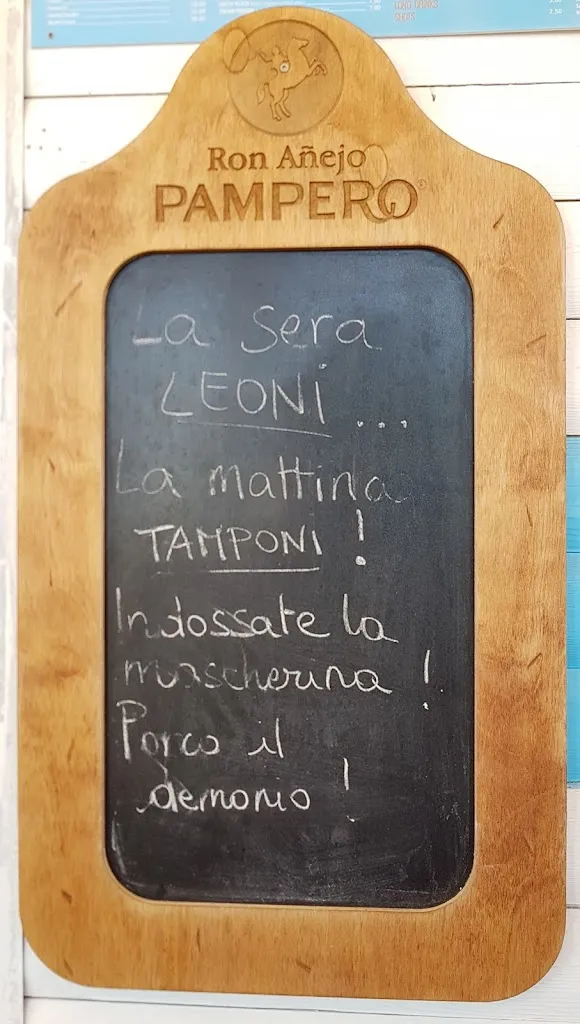 Ron Añejo
PAMPERO
La sera
LEONI ...
La mattina
TAMPONI !
Indossate la
mascherina !
Porco il
demonio !